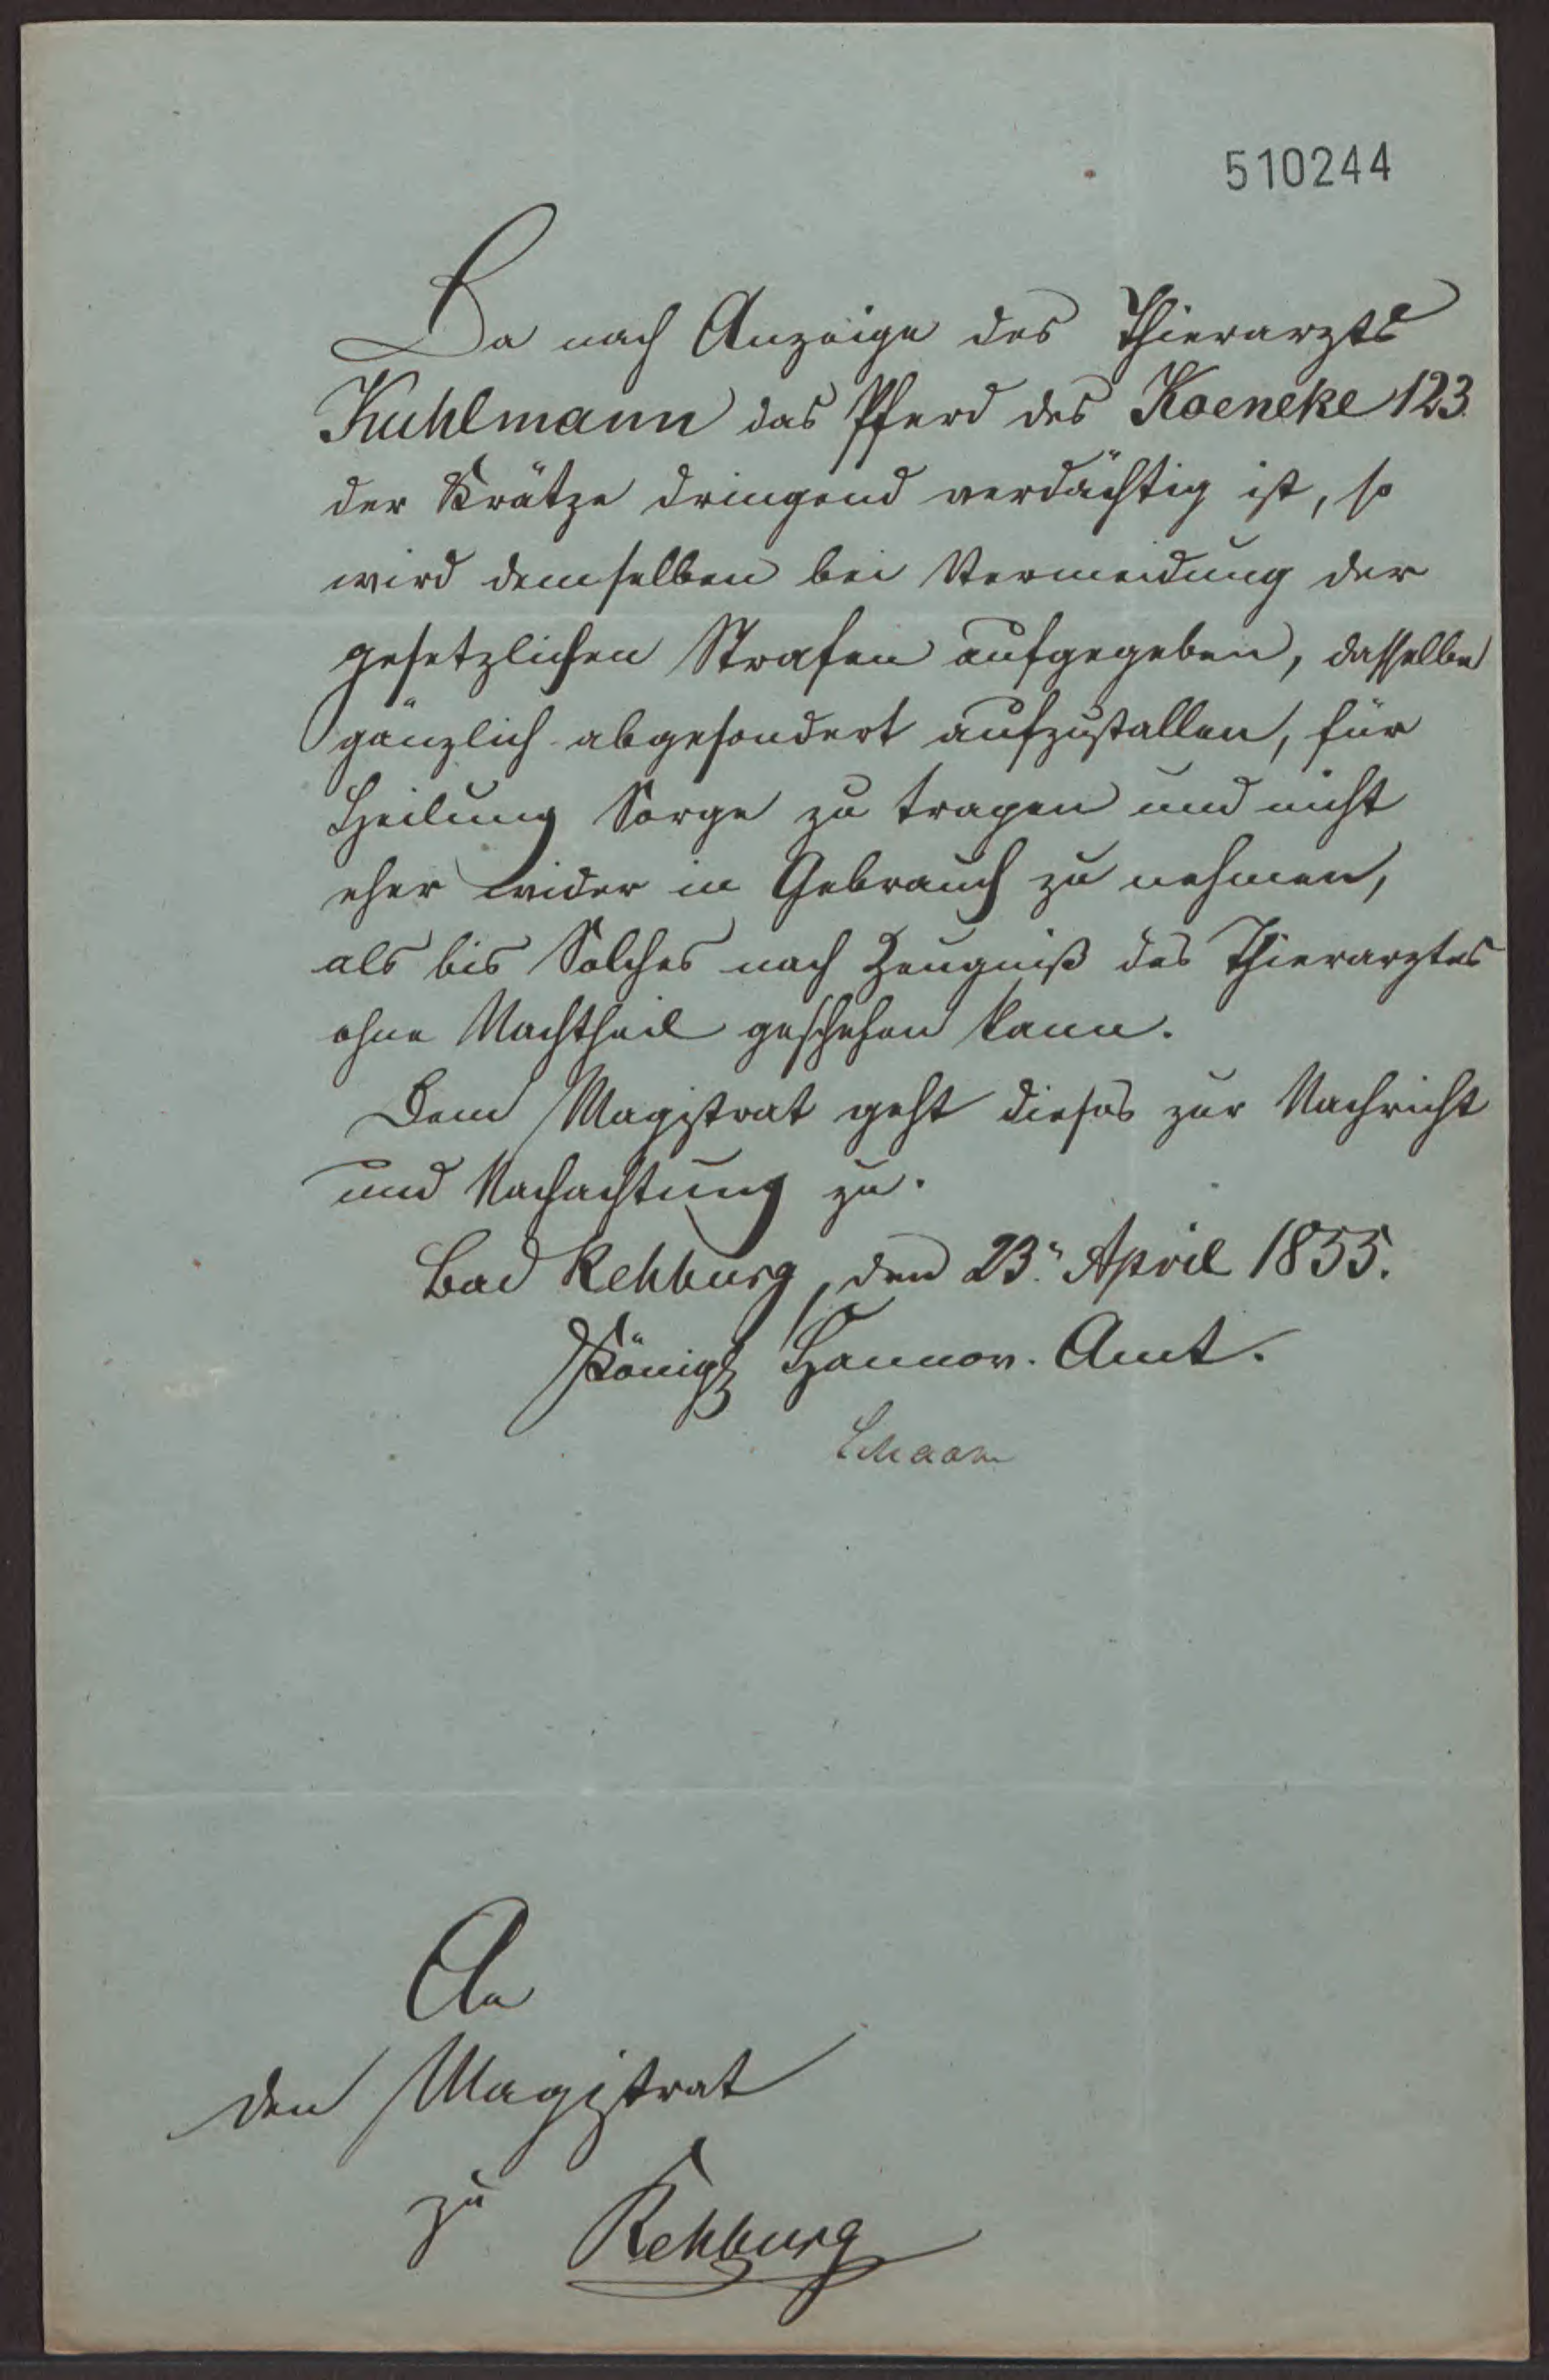 510244
Da nach Anzeige des Thierarzts
Kuhlmann das Pferd des Koeneke 123.
der Krätze dringend verdächtig ist, so
wird demselben bei Vermeidung der
gesetzlichen Strafen aufgegeben, dasselbe
gänzlich abgesondert aufzustallen, für
Heilung Sorge zu tragen und nicht
eher wider in Gebrauch zu nehmen,
als bis Solches nach Zeugniß des Thierarztes
ohne Nachtheil geschehen kann.
Dem Magistrat geht dieses zur Nachricht
und Nachachtung zu.
Bad Rehburg, den 23. April 1855.
Königl Hannov. Amt.
An
den Magistrat
zu Rehburg